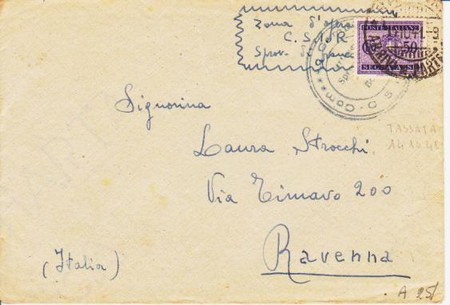 Zona d'
C.S.I.R
Sprov.
POSTE ITALIANE
50
SEGNATASSE
Signorina
Laura Strocchi
Via Timavo 200
Ravenna
(Italia)
TASSATA
A 25/